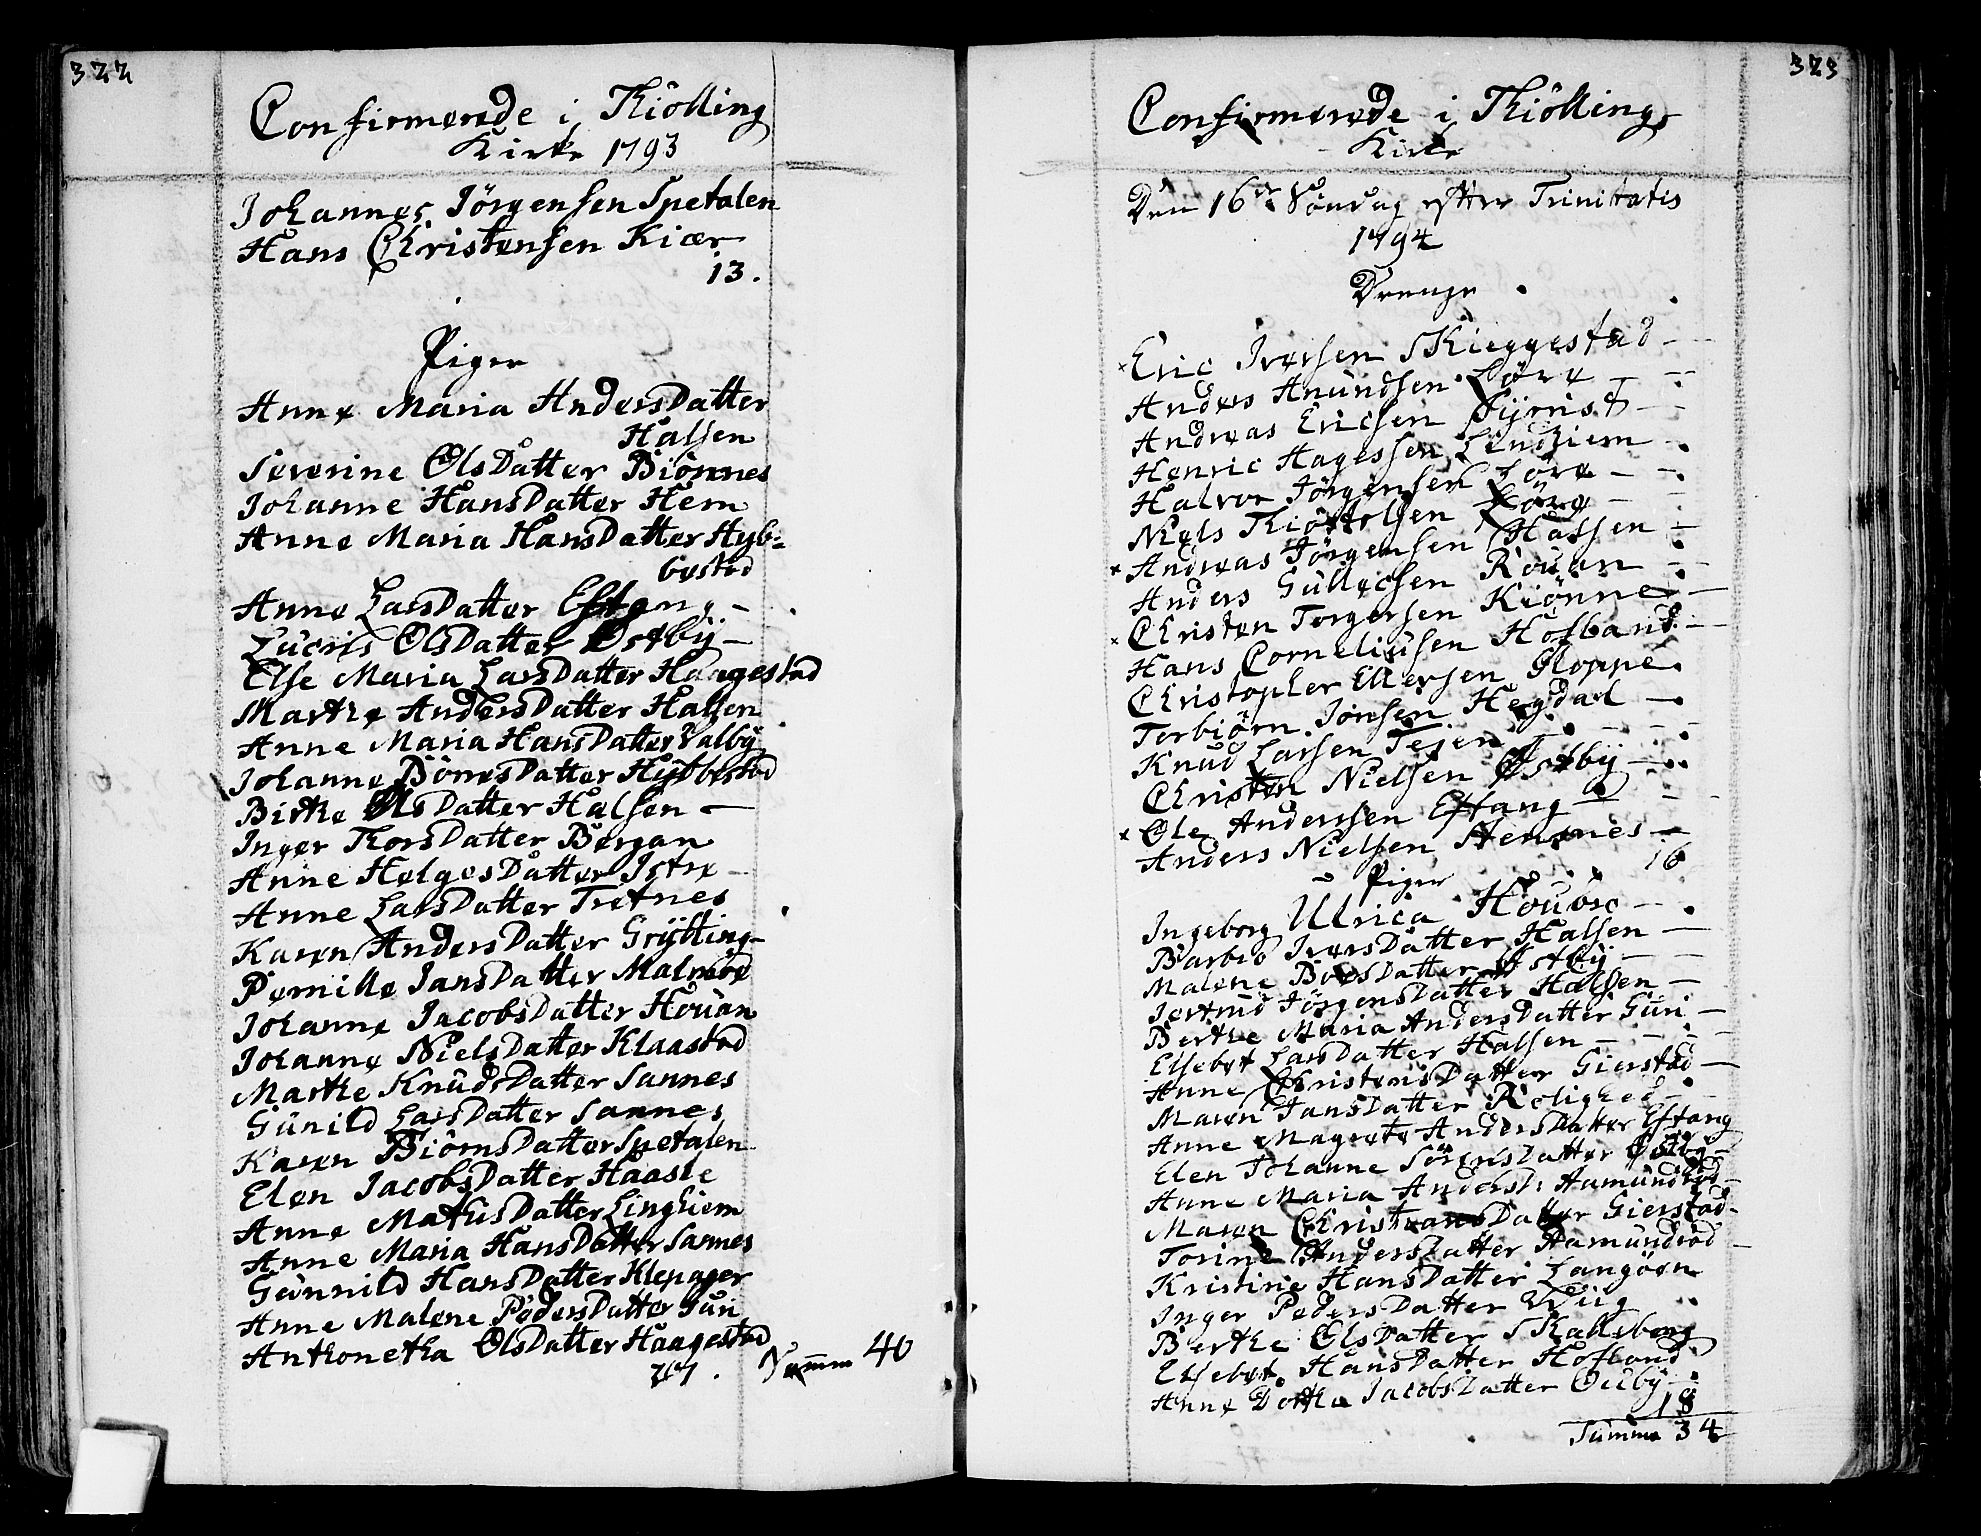 322
Confirmerede i Thiölling
Kirke 1793
Johannes Jörgensen Spetalen
Hans Christensen Kiær
13.
Piger
Anne Maria AndersDatter
Halsen
Severine OlsDatter Biönnes
Johanne HansDatter Hem
Anne Maria HansDatter Hyb-
bestad
Anne LarsDatter Eftang -
Lucris OlsDatter Östbÿ -
Else Maria LarsDatter Haagestad
Marthe AndersDatter Halsen
Anne Maria HansDatter Valbÿ
Johanne BöriesDatter Hybbestad
Birthe OlsDatter Halsen -
Inger ThorsDatter Bergan
Anne HelgesDatter Istre -
Anne LarsDatter Tretnes
Karen AndersDatter Grÿtting -
Pernille JansDatter Malmöe
Johanne JacobsDatter Houan
Johanne NielsDatter Klaastad
Marthe KnudsDatter Sannes
Gunild LarsDatter Sannes
Karen BiörnsDatter Spetalen
Elen JacobsDatter Haasle
Anne MatisDatter Linghiem
Anne Maria HansDatter Sannes
Gunnild HansDatter Klepager
Anne Malene PedersDatter Guri
Anthonetha OlsDatter Haagestad
27. Summ 40
323
Confirmerede i Thiölling
Kirke
Den 16de Söndag efter Trinitatis
1794
Drenge
Eric Iversen Skieggestad -
Anders Anundsen Löve -
Andreas Ericsen Fÿrrist -
Henric Hagessen Lindhiem -
Halvor Jörgensen Löve -
Niels Thiöstelsen Löve -
× Andreas Jörgensen Halsen -
Anders Gullicsen Rouan -
Christen Torgersen Kiönne -
× Hans Corneliusen Hofland -
Christopher Ellefsen Gloppe
Torbiörn Jonsen Hegdal -
Knud Larsen Tejen
Christen Nielsen Östby -
Ole Andersen Eftang -
× Anders Nielsen Hemsnes -
16
Piger
Ingeborg Ulrica Houose -
Barbro IversDatter Halsen -
Malene BoesDatter Östbÿ -
Jertrud JörgensDatter Halsen -
Berthe Maria AndersDatter Guri -
Elsebet LarsDatter Halsen -
Anne ChristensDatter Gierstad -
Maren JansDatter Rolighed -
Anne Magrete AndersDatter Eftang
Elen Johanne SörensDatter Östbÿ -
Anne Maria AndersD: Aamundröd -
Maren ChristiansDatter Gierstad -
Torine AndersDatter Aamundröd -
Kristine HansDatter Langöen
Inger PedersDatter Wiig
Berthe OlsDatter Skallsberg
Elsebet HansDatter Hofland
Anne Dorthea JacobsDatter Oulbÿ -
18
Summa 34